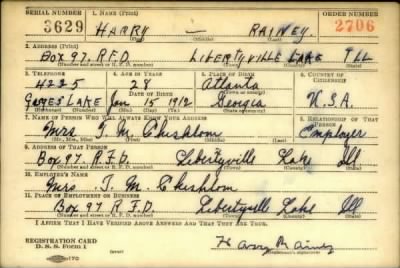 SERIAL NUMBER 1. NAME (Print) ORDER NUMBER
3629 HARRY — RAINEY. 2706
(First) (Middle) (Last)
2. ADDRESS (Print)
Box 97. R.F.D LIBERTYVILLE LAKE ILL
(Number and street or R. F. D. number) (Town) (County) (State)
3. TELEPHONE 4. AGE IN YEARS 5. PLACE OF BIRTH 6. COUNTRY OF CITIZENSHIP
4225 28 Atlanta
DATE OF BIRTH (Town or county)
LAKE Jan 15 1912 Georgia U.S.A.
(Exchange) (Number) (Mo.) (Day) (Yr.) (State or country)
7. NAME OF PERSON WHO WILL ALWAYS KNOW YOUR ADDRESS 8. RELATIONSHIP OF THAT PERSON
Mrs T. M. Chisholm Employer
(Mr., Mrs., Miss) (First) (Middle) (Last)
9. ADDRESS OF THAT PERSON
Box 97. R.F.D. Libertyville Lake Ill
(Number and street or R. F. D. number) (Town) (County) (State)
10. EMPLOYER'S NAME
Mrs. T. M. Chisholm
11. PLACE OF EMPLOYMENT OR BUSINESS
Box 97 R.F.D. Libertyville Lake Ill
(Number and street or R. F. D. number) (Town) (County) (State)
I AFFIRM THAT I HAVE VERIFIED ABOVE ANSWERS AND THAT THEY ARE TRUE.
REGISTRATION CARD
D. S. S. Form 1 Harry Rainey
(Registrant's signature)